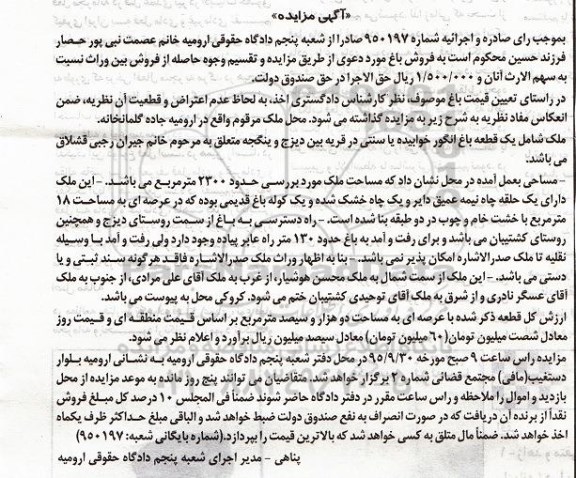 «آگهی مزایده»
بموجب رای صادره و اجرائیه شماره ۹۵۰۱۹۷ صادرا از شعبه پنجم دادگاه حقوقی ارومیه خانم عصمت نبی پور حصار
فرزند حسین محکوم است به فروش باغ مورد دعوی از طریق مزایده و تقسیم وجوه حاصله از فروش بین وراث نسبت
به سهم الارث آنان و ۱/۵۰۰/۰۰۰ ریال حق الاجرا در حق صندوق دولت.
در راستای تعیین قیمت باغ موصوف، نظر کارشناس دادگستری اخذ، به لحاظ عدم اعتراض و قطعیت آن نظریه، ضمن
انعکاس مفاد نظریه به شرح زیر به مزایده گذاشته می شود. محل ملک مرقوم واقع در ارومیه جاده گلمانخانه.
ملک شامل یک قطعه باغ انگور خوابیده یا سنتی در قریه بین دیزج و ینگجه متعلق به مرحوم خانم جیران رجبی قشلاق
می باشد.
- مساحی بعمل آمده در محل نشان داد که مساحت ملک مورد بررسی حدود ۲۳۰۰ مترمربع می باشد. - این ملک
دارای یک حلقه چاه نیمه عمیق دایر و یک چاه خشک شده و یک کوله باغ قدیمی بوده که در عرصه ای به مساحت ۱۸
مترمربع با خشت خام و چوب در دو طبقه بنا شده است. - راه دسترسی به باغ از سمت روستای دیزج و همچنین
روستای کشتیبان می باشد و برای رفت و آمد به باغ حدود ۱۳۰ متر راه عابر پیاده وجود دارد ولی رفت و آمد با وسیله
نقلیه تا ملک صدرالاشاره امکان پذیر نمی باشد. - بنا به اظهار وراث ملک صدرالاشاره فاقد هرگونه سند ثبتی و یا
دستی می باشد. - این ملک از سمت شمال به ملک محسن هوشیار، از غرب به ملک آقای علی مرادی، از جنوب به ملک
آقای عسگر نادری و از شرق به ملک آقای توحیدی کشتیبان ختم می شود. کروکی محل به پیوست می باشد.
ارزش کل قطعه ذکر شده با عرصه ای به مساحت دو هزار و سیصد مترمربع بر اساس قیمت منطقه ای و قیمت روز
معادل شصت میلیون تومان(۶۰ میلیون تومان) معادل سیصد میلیون ریال برآورد و اعلام نظر می شود.
مزایده راس ساعت ۹ صبح مورخه ۹۵/۹/۳۰ در محل دفتر شعبه پنجم دادگاه حقوقی ارومیه به نشانی ارومیه بلوار
دستغیب(مافی) مجتمع قضائی شماره ۲ برگزار خواهد شد. متقاضیان می توانند پنج روز مانده به موعد مزایده از محل
بازدید و اموال را ملاحظه و راس ساعت مقرر در دفتر دادگاه حاضر شوند ضمناً فی المجلس ۱۰ درصد کل مبلغ فروش
نقداً از برنده آن دریافت که در صورت انصراف به نفع صندوق دولت ضبط خواهد شد و الباقی مبلغ حداکثر ظرف یکماه
اخذ خواهد شد. ضمناً مال متلق به کسی خواهد شد که بالاترین قیمت را بپردازد.(شماره بایگانی شعبه: ۹۵۰۱۹۷)
پناهی - مدیر اجرای شعبه پنجم دادگاه حقوقی ارومیه